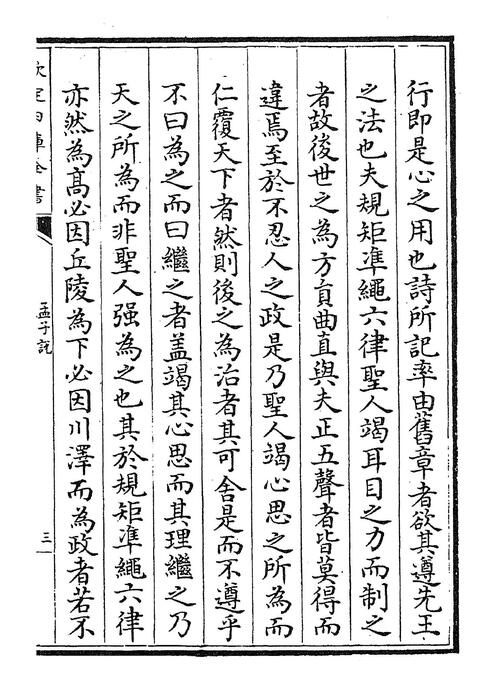 行即是心之用也詩所記率由舊章者欲其遵先王
之法也夫規矩凖繩六律聖人竭耳目之力而制之
者故後世之為方員曲直與夫正五聲者皆莫得而
違焉至於不忍人之政是乃聖人竭心思之所為而
仁覆天下者然則後之為治者其可舍是而不遵乎
不曰為之而曰繼之者盖竭其心思而其理繼之乃
天之所為而非聖人强為之也其於規矩凖繩六律
亦然為髙必因丘陵為下必因川澤而為政者若不
欽定四庫全書
孟子說
三